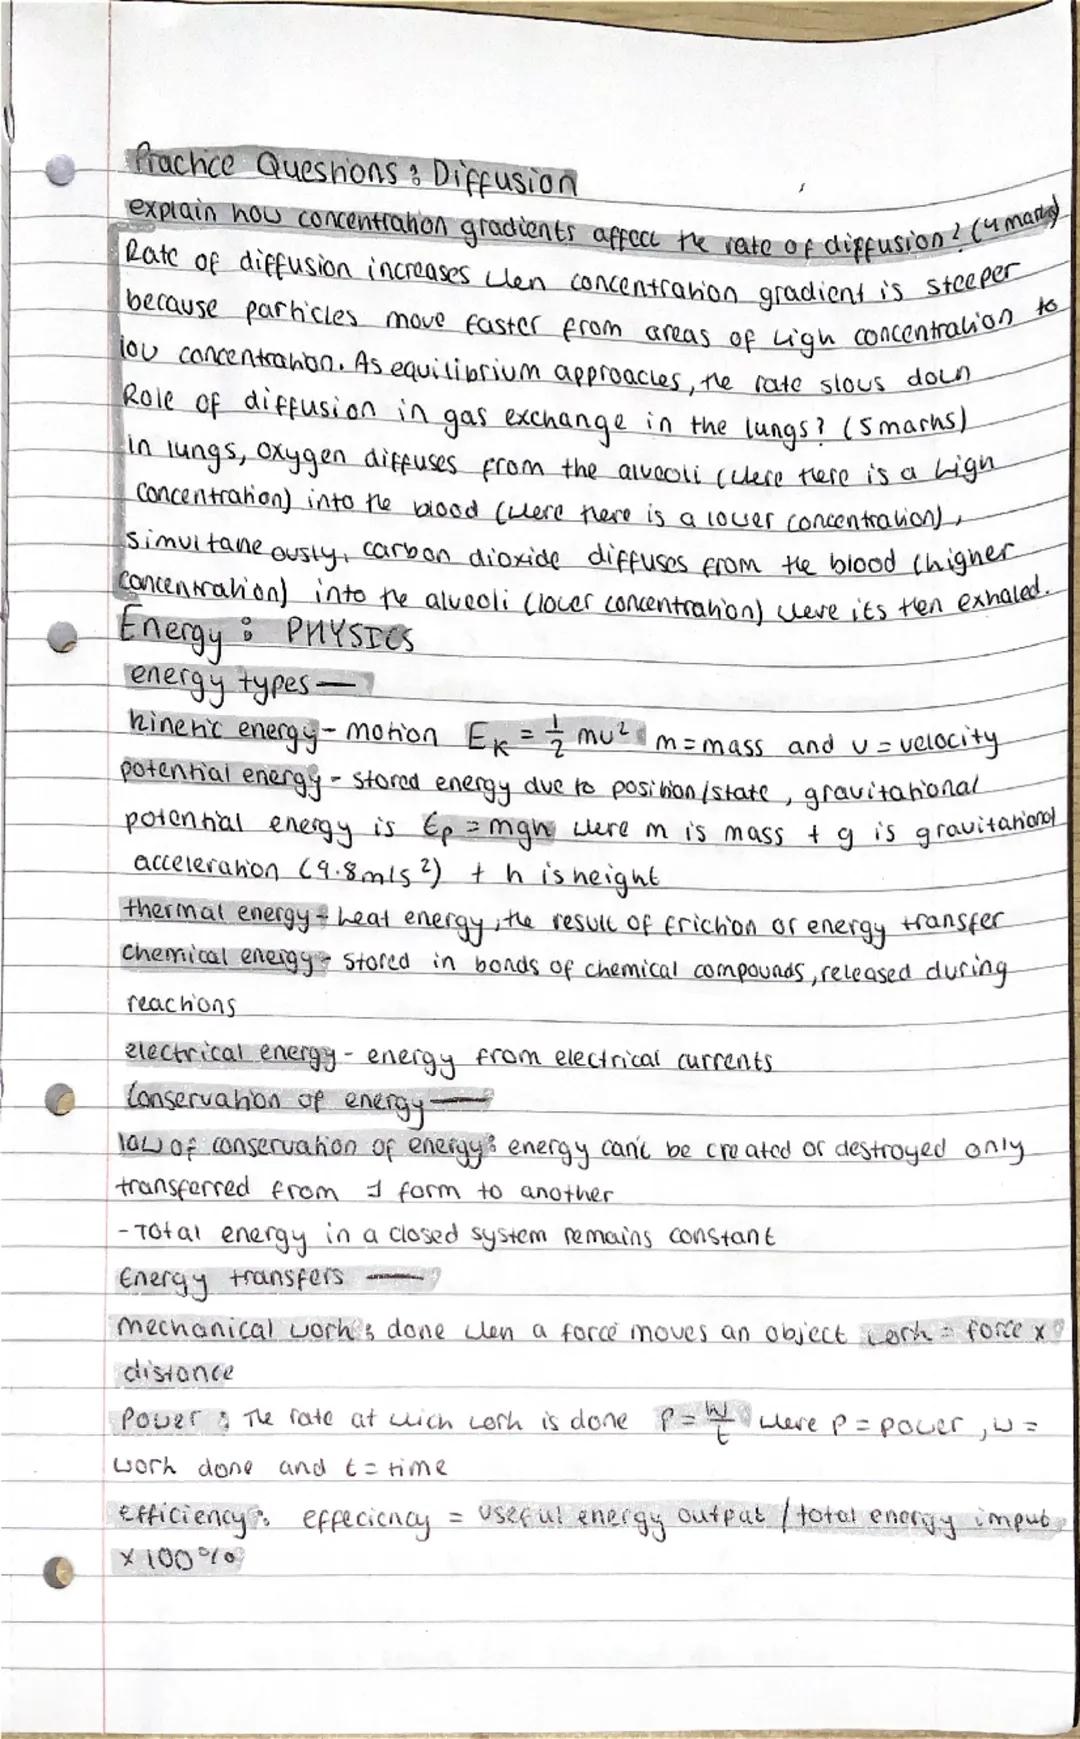 Practice Questions : Diffusion
explain how concentration gradients affect the rate of diffusion? (4 marks)
Rate of diffusion increases when concentration gradient is steeper
because particles move faster from areas of high concentration to
low concentration. As equilibrium approaches, the rate slows down
Role of diffusion in gas exchange in the lungs? (5 marks)
in lungs, oxygen diffuses from the alveoli (where there is a high
concentration) into the blood (where there is a lower concentration),
simultaneously, carbon dioxide diffuses from the blood (higher
concentration) into the alveoli (lower concentration) where its then exhaled.
Energy : PHYSICS
energy types —
kinetic energy - motion Eₖ = ½ mv² m = mass and v = velocity
potential energy - stored energy due to position/state, gravitational
potential energy is Ep = mgh where m is mass + g is gravitational
acceleration (9.8m/s²) + h is height
thermal energy - heat energy, the result of friction or energy transfer
chemical energy - stored in bonds of chemical compounds, released during
reactions
electrical energy - energy from electrical currents
Conservation of energy —
law of conservation of energy : energy can't be created or destroyed only
transferred from 1 form to another
- Total energy in a closed system remains constant
Energy transfers —
mechanical work : done when a force moves an object work = force x
distance
Power : The rate at which work is done P = W/t where P = power, w =
work done and t = time
efficiency : effeciency = useful energy output / total energy imput
x 100%